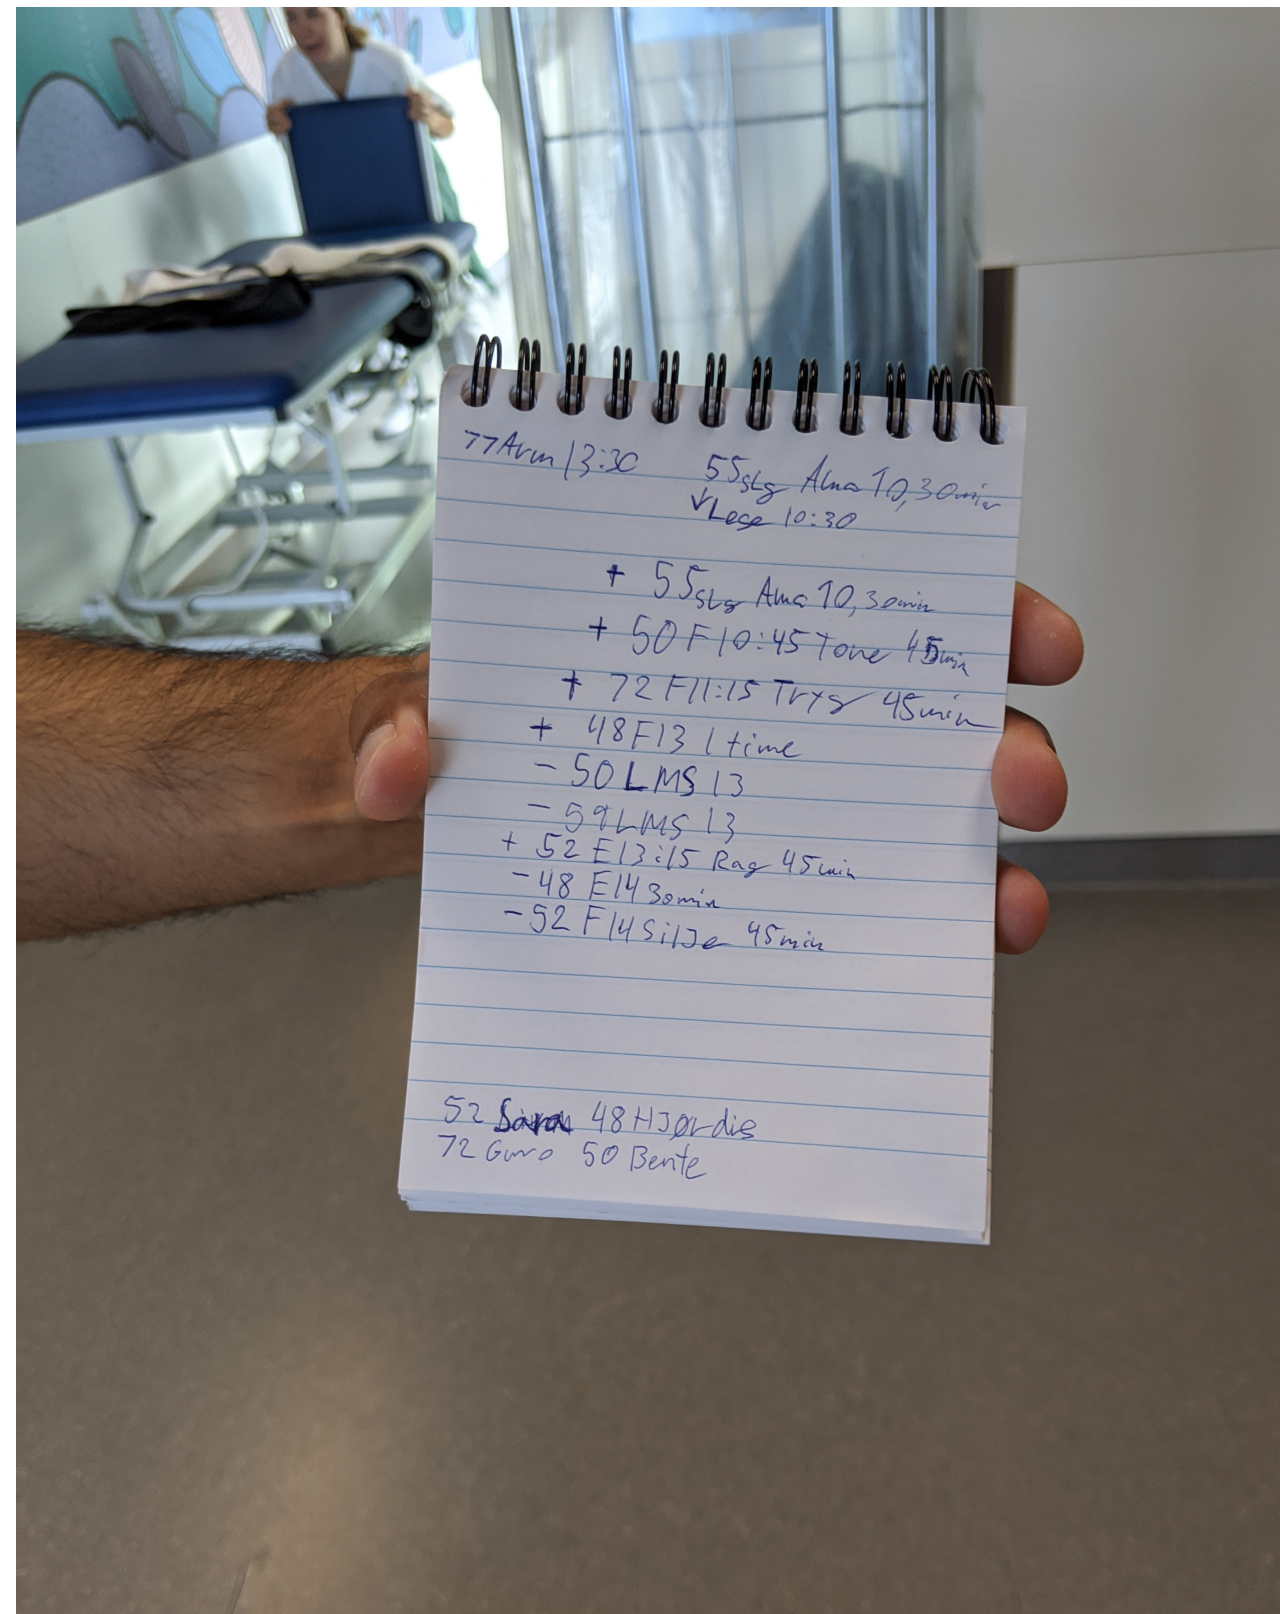 77 Arm 13:30 55 slg Alma 10, 30min
Lege 10:30
+ 55 slg Alma 10, 30min
+ 50 F 10:45 Tone 45min
+ 72 F 11:15 Tryg 45min
+ 48 F 13 1 time
- 50 LMS 13
- 59 LMS 13
+ 52 E 13:15 Rag 45min
- 48 E 14 30min
- 52 F 14 Silje 45min
52 Sara 48 Hjørdis
72 Guro 50 Bente